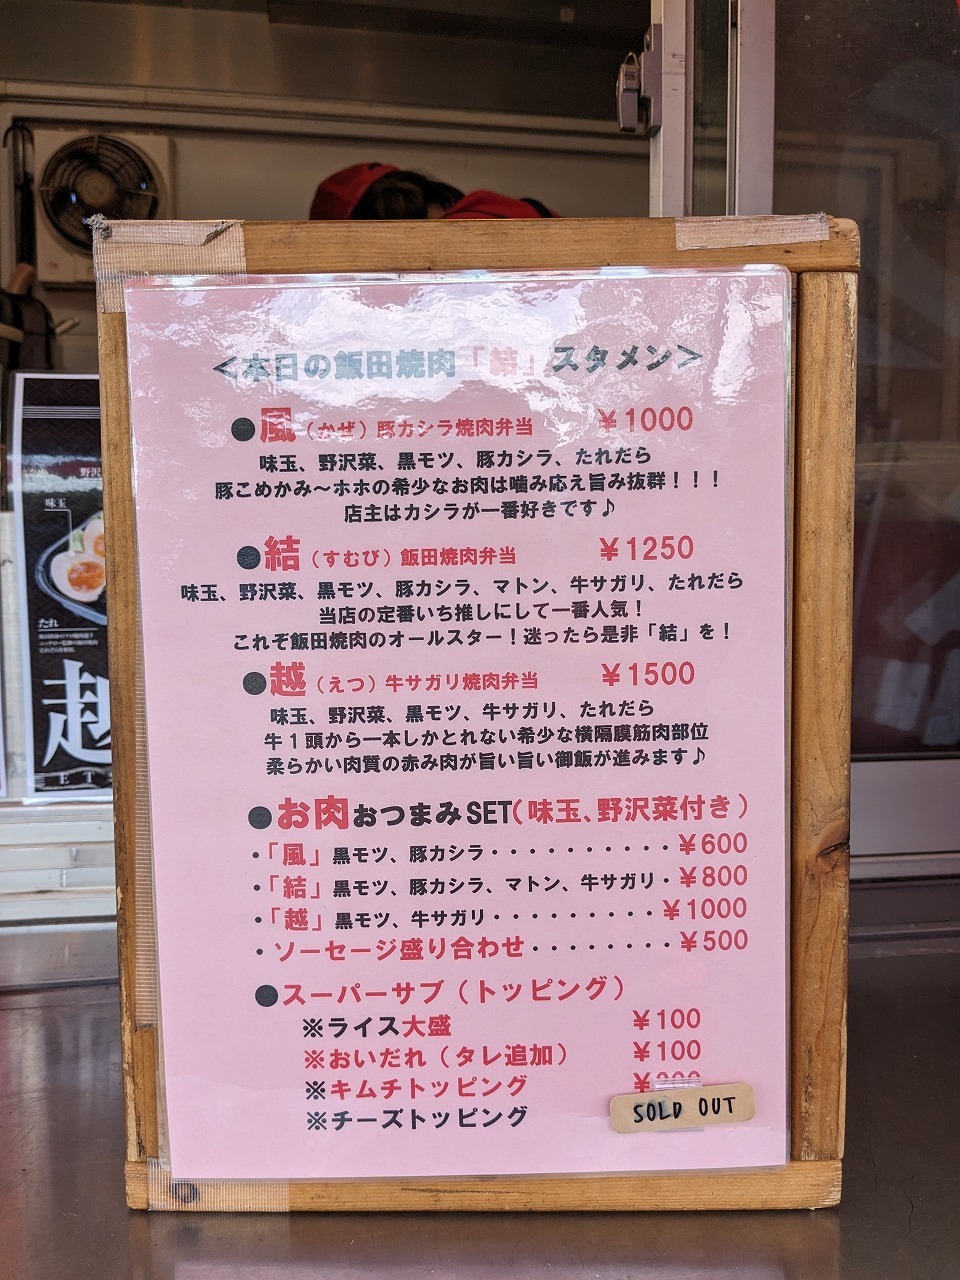 ＜本日の飯田焼肉「結」スタメン＞
●風（かぜ）豚カシラ焼肉弁当 ￥1000
味玉、野沢菜、黒モツ、豚カシラ、たれだら
豚こめかみ～ホホの希少なお肉は噛み応え旨み抜群！！！
店主はカシラが一番好きです♪
●結（すむび）飯田焼肉弁当 ￥1250
味玉、野沢菜、黒モツ、豚カシラ、マトン、牛サガリ、たれだら
当店の定番いち推しにして一番人気！
これぞ飯田焼肉のオールスター！迷ったら是非「結」を！
●越（えつ）牛サガリ焼肉弁当 ￥1500
味玉、野沢菜、黒モツ、牛サガリ、たれだら
牛１頭から一本しかとれない希少な横隔膜筋肉部位
柔らかい肉質の赤み肉が旨い旨い御飯が進みます♪
●お肉おつまみSET（味玉、野沢菜付き）
・「風」黒モツ、豚カシラ・・・・・・・・・・￥600
・「結」黒モツ、豚カシラ、マトン、牛サガリ・￥800
・「越」黒モツ、牛サガリ・・・・・・・・・￥1000
・ソーセージ盛り合わせ・・・・・・・・￥500
●スーパーサブ（トッピング）
※ライス大盛 ￥100
※おいだれ（タレ追加） ￥100
※キムチトッピング
※チーズトッピング
SOLD OUT
野沢
味玉
たれ
越